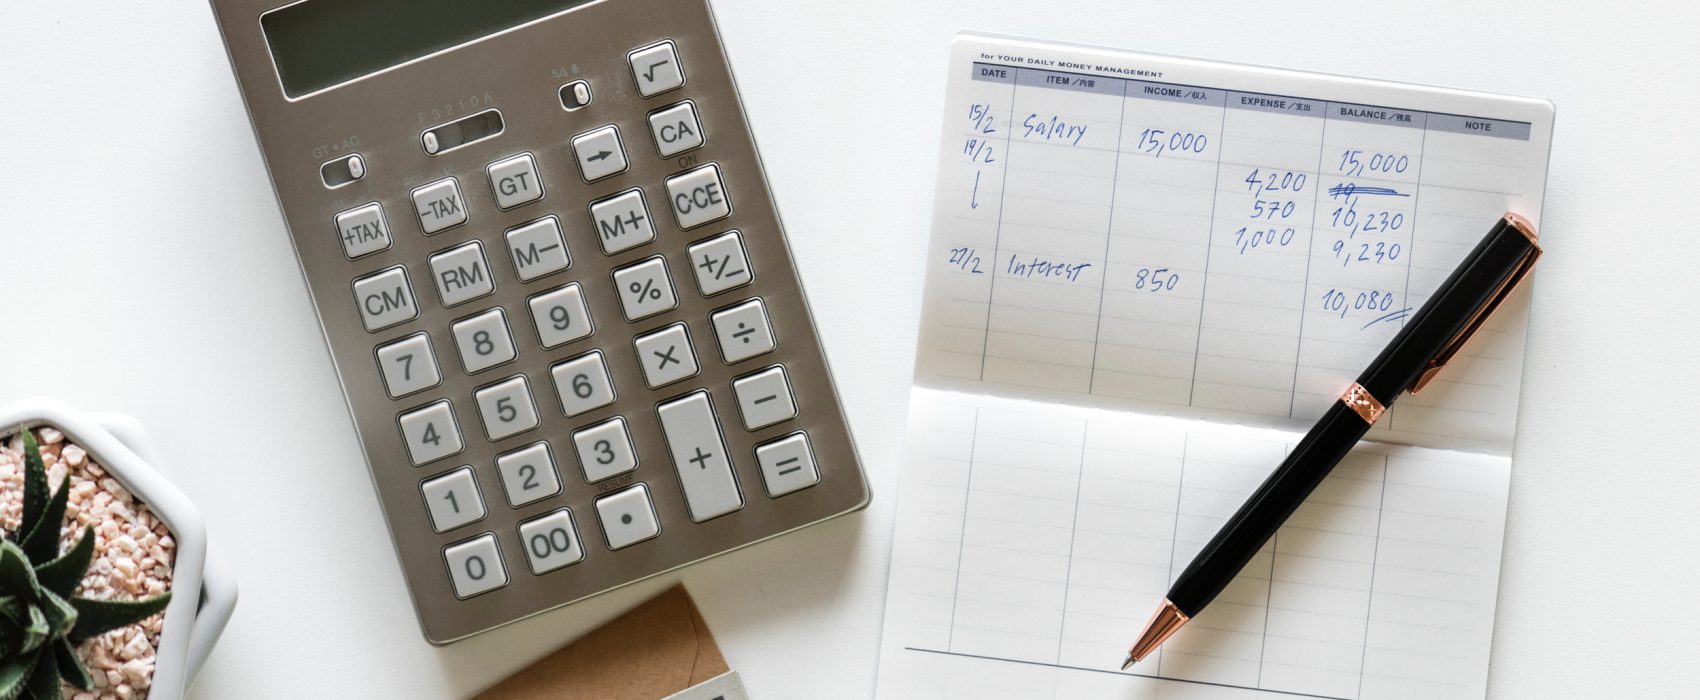 5/4
F 3 2 1 0 A
GT • AC
√
CA
ON
→
GT
-TAX
+TAX
C·CE
M+
M-
RM
CM
+/-
%
9
8
7
÷
×
6
5
4
-
+
3
2
1
=
RESUME
•
00
0
for YOUR DAILY MONEY MANAGEMENT
DATE ITEM/内容 INCOME/収入 EXPENSE/支出 BALANCE/残高 NOTE
15/2 Salary 15,000 15,000
19/2 4,200
570 10,230
1,000 9,230
27/2 Interest 850 10,080